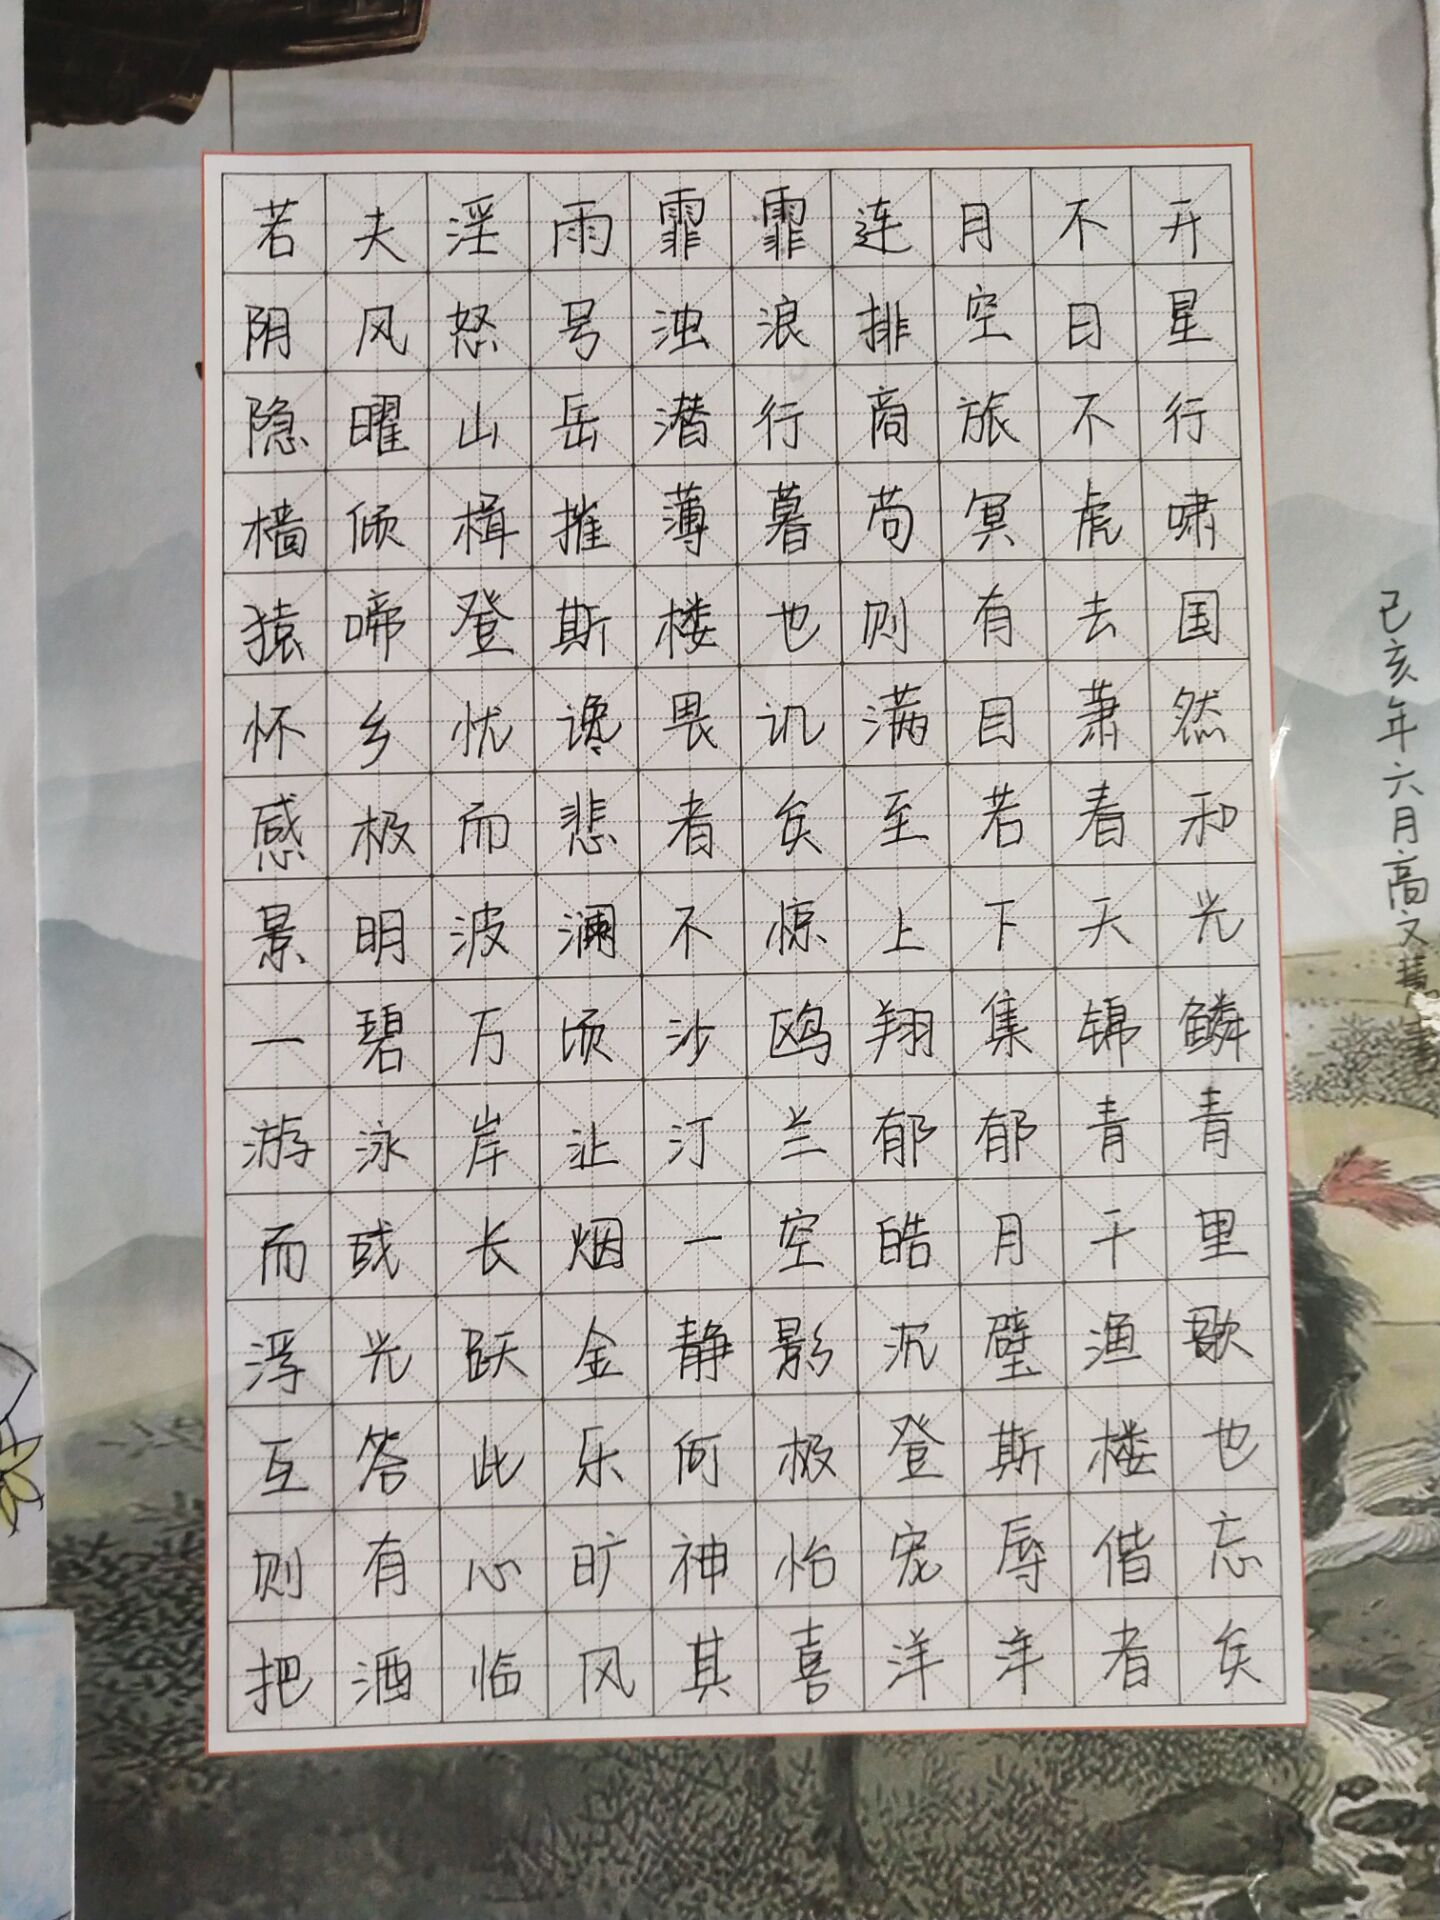 若夫淫雨霏霏连月不开
阴风怒号浊浪排空日星
隐曜山岳潜行商旅不行
樯倾楫摧薄暮苘冥虎啸
猿啼登斯楼也则有去国
怀乡忧谗畏讥满目萧然
感极而悲者矣至若春和
景明波澜不惊上下天光
一碧万顷沙鸥翔集锦鳞
游泳岸芷汀兰郁郁青青
而或长烟一空皓月千里
浮光跃金静影沉璧渔歌
互答此乐何极登斯楼也
则有心旷神怡宠辱偕忘
把酒临风其喜洋洋者矣
己亥年六月高文慧书